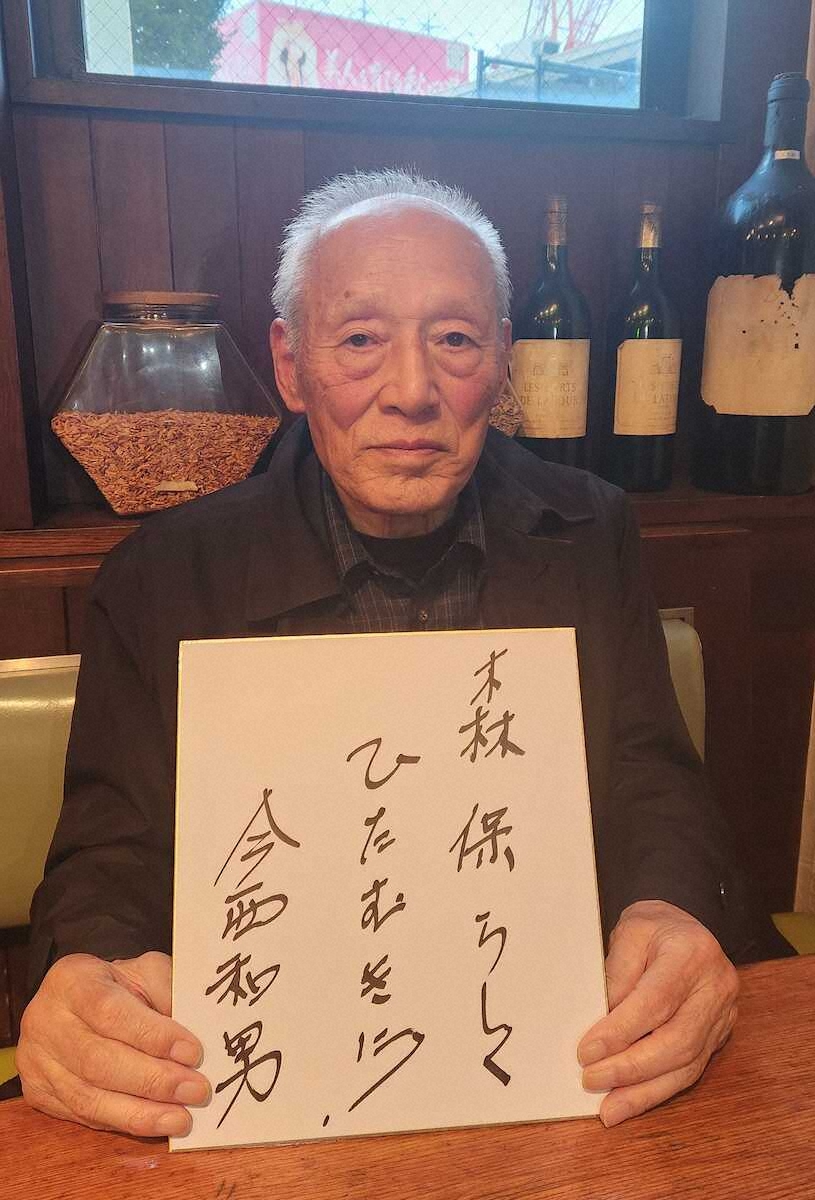 森保らしく
ひたむきに
今西和男
LES FORTS
DE LATOUR